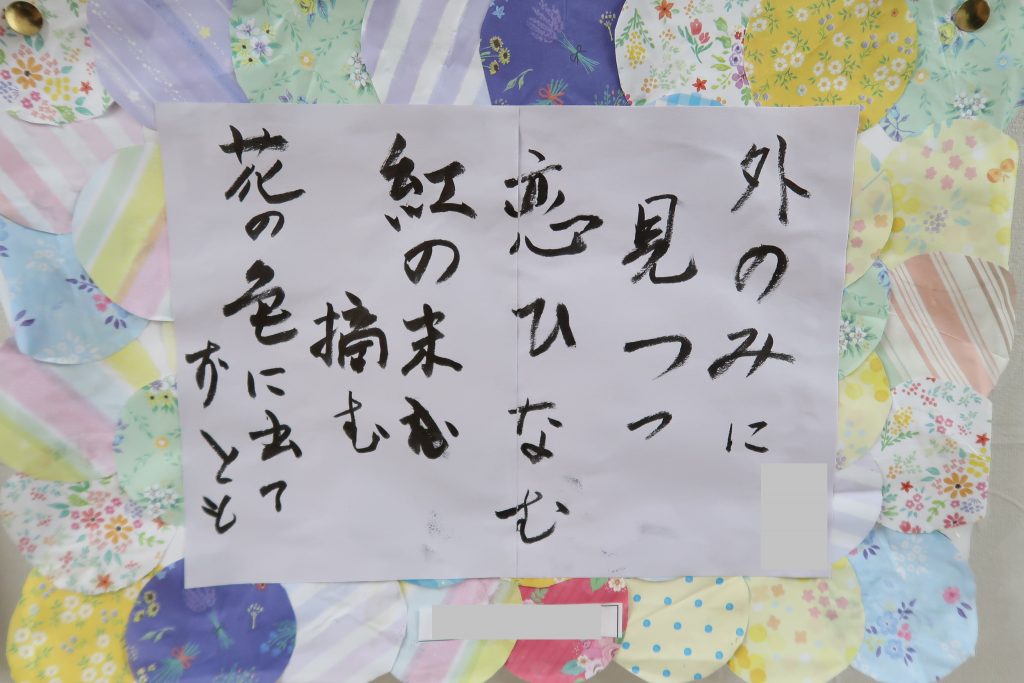 外のみに
見つつ
恋ひなむ
紅の末む
摘む
花の色に出て
ずとも